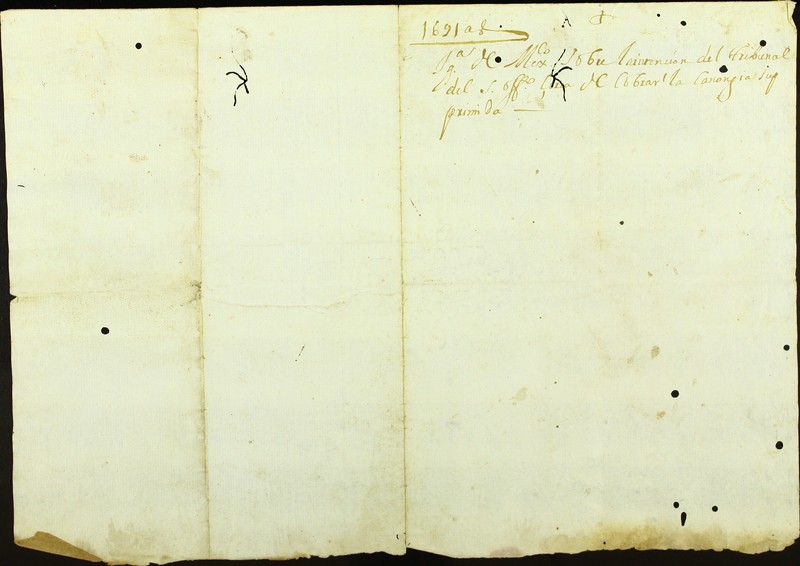 1691 as
de Mex.co sobre la intencion del Tribunal
del S. Off.o de Cobrar la Canongia sup
primida